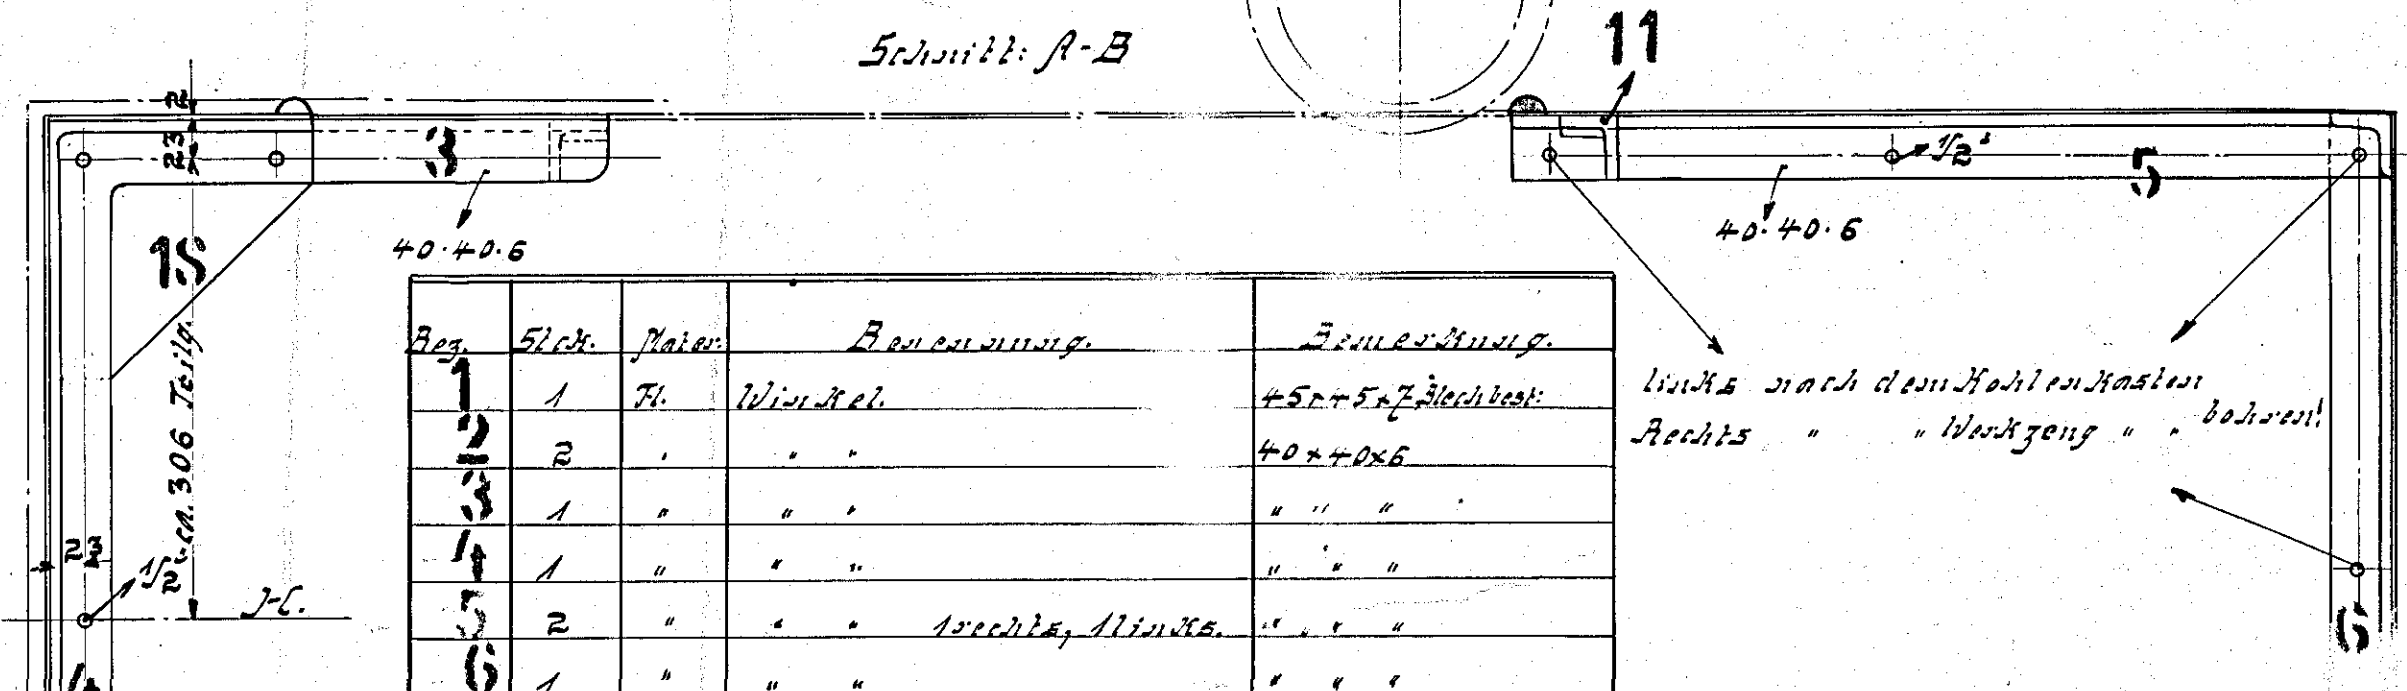 Schnitt: A-B
11
2
23
3
1/2"
5
40·40·6
40·40·6
18
ca. 306 Teilg.
23
1/2"
J-C.
4
Bez. Stck. Mater. Benennung. Bemerkung.
1 1 Fl. Winkel. 45x45x7 Blech best:
2 2 " " " 40x40x6
3 1 " " " " " "
4 1 " " " " " "
5 2 " " " 1 rechts, 1 links. " " "
6 1 " " " " " "
links nach dem Kohlenkasten
Rechts " " Werkzeug " " bohren!
6